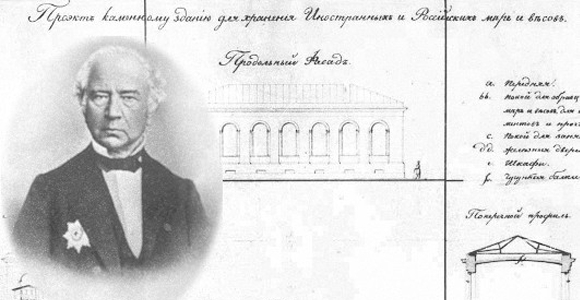 Проэктъ каменному зданію для храненія Иностранныхъ и Россійскихъ мѣръ и вѣсовъ.
Продольный Фасадъ.
a. Передняя.
bb. покой для образц
мѣръ и вѣсовъ, для
ментовъ и проч
c. Покой для заня
dd. желѣзныя двери
e. Шкафы.
f. чугунныя балки
Поперечный профиль.
f